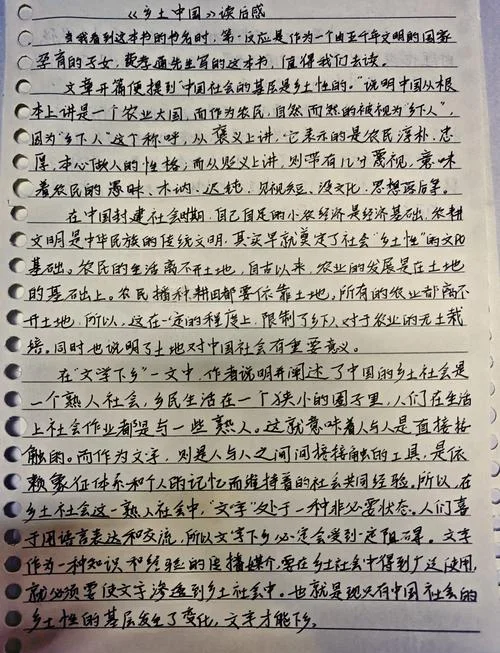 《乡土中国》读后感
当我看到这本书的书名时,第一反应是作为一个由五千年文明的国家
孕育的子女,费孝通先生写的这本书,值得我们去读。
文章开篇便提到“中国社会的基层是乡土性的。”说明中国从根
本上讲是一个农业大国,而作为农民,自然而然的被视为“乡下人”,
因为“乡下人”这个称呼,从褒义上讲,它表示的是农民淳朴、忠
厚,本心做人的性格;而从贬义上讲,则带有几分蔑视,意味
着农民的愚昧、木讷、迟钝、见识短、没文化、思想落后等。
在中国封建社会时期,自己自足的小农经济是经济基础,农耕
文明是中华民族的传统文明,其实早就奠定了社会“乡土性”的文化
基础。农民的生活离不开土地,自古以来,农业的发展是在土地
的基础上。农民播种、耕田都要依靠土地,所有的农业都离不
开土地,所以,这在一定的程度上,限制了乡下人对于农业的无土栽
培。同时也说明了土地对中国社会有重要意义。
在“文字下乡”一文中,作者说明并阐述了中国的乡土社会是
一个熟人社会,乡民生活在一个狭小的圈子里,人们在生活
上社会作业都是与一些熟人。这就意味着人与人是直接接
触的。而作为文字,则是人与人之间间接接触的工具,是依
赖象征体系和个人的记忆而维持着的社会共同经验。所以,在
乡土社会这一熟人社会中,“文字”处于一种非必要状态。人们喜
于用语言表达和交流,所以文字下乡必定会受到一定阻碍。文字
作为一种知识和经验的传播媒介,要在乡土社会中得到广泛使用,
就必须要使文字渗透到乡土社会中。也就是现只有中国社会的
乡土性的基层发生了变化,文字才能下乡。